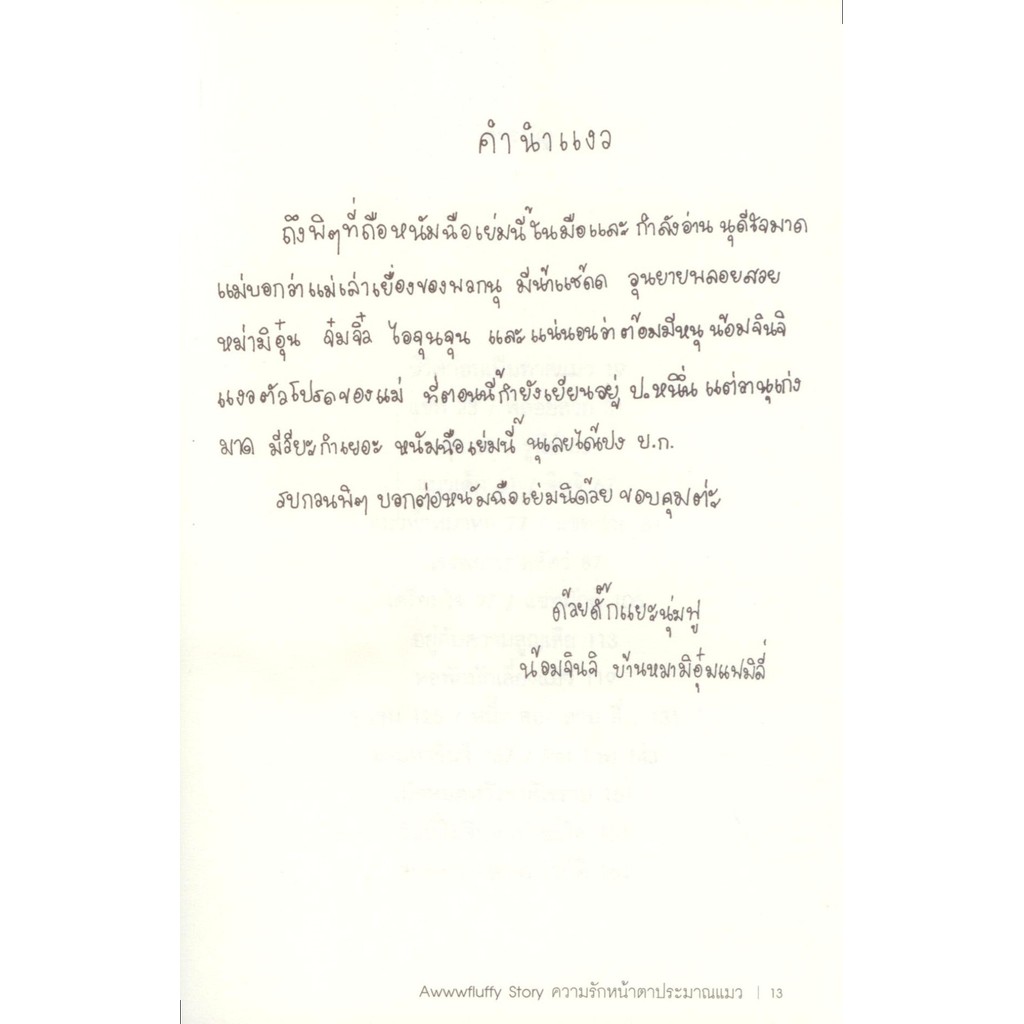 คำนำแงว
ถึงพิๆที่ถือหนัมฉือเย่มนี้ในมือและ กำลังอ่าน นุดีใจมาด
แม่บอกว่าแม่เล่าเยื่องของพวกนุ มีน้าแช้ดด วุนยายพลอยสวย
หม่ามิอุ๋น จ๋มจิ๋ว ไอจุนจุน และแน่นอนว่าต้อมมีหนุ น้อมจินจิ
แงวตัวโปรดของแม่ ที่ตอนนี้กำยังเยียนอยู่ ป.หนึ่น แต่วานุเก่ง
มาด มีวียะกำเยอะ หนัมฉือเย่มนี้ นุเลยได้เปง บ.ก.
รบกวนพิๆ บอกต่อหนัมฉือเย่มนิด้วย ขอบคุมต่ะ
ด้วยดั๊กแยะนุ่มฟู
น้อมจินจิ บ้านหมามิอุ๋มแฟมิลี่
Awwwfluffy Story ความรักหน้าตาประมาณแมว | 13